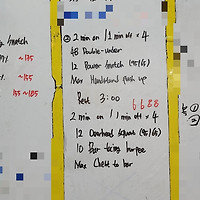 snatch
% ~135
~155
155~185
② 2 min on / 1 min off × 4
48 Double-under
12 Power snatch (95/65)
Max Handstand push up
Rest 3:00
6 6 8 8
2 min on / 1 min off × 4
12 Overhead squat (95/65)
10 Bar facing burpee
Max Chest to bar
①
②